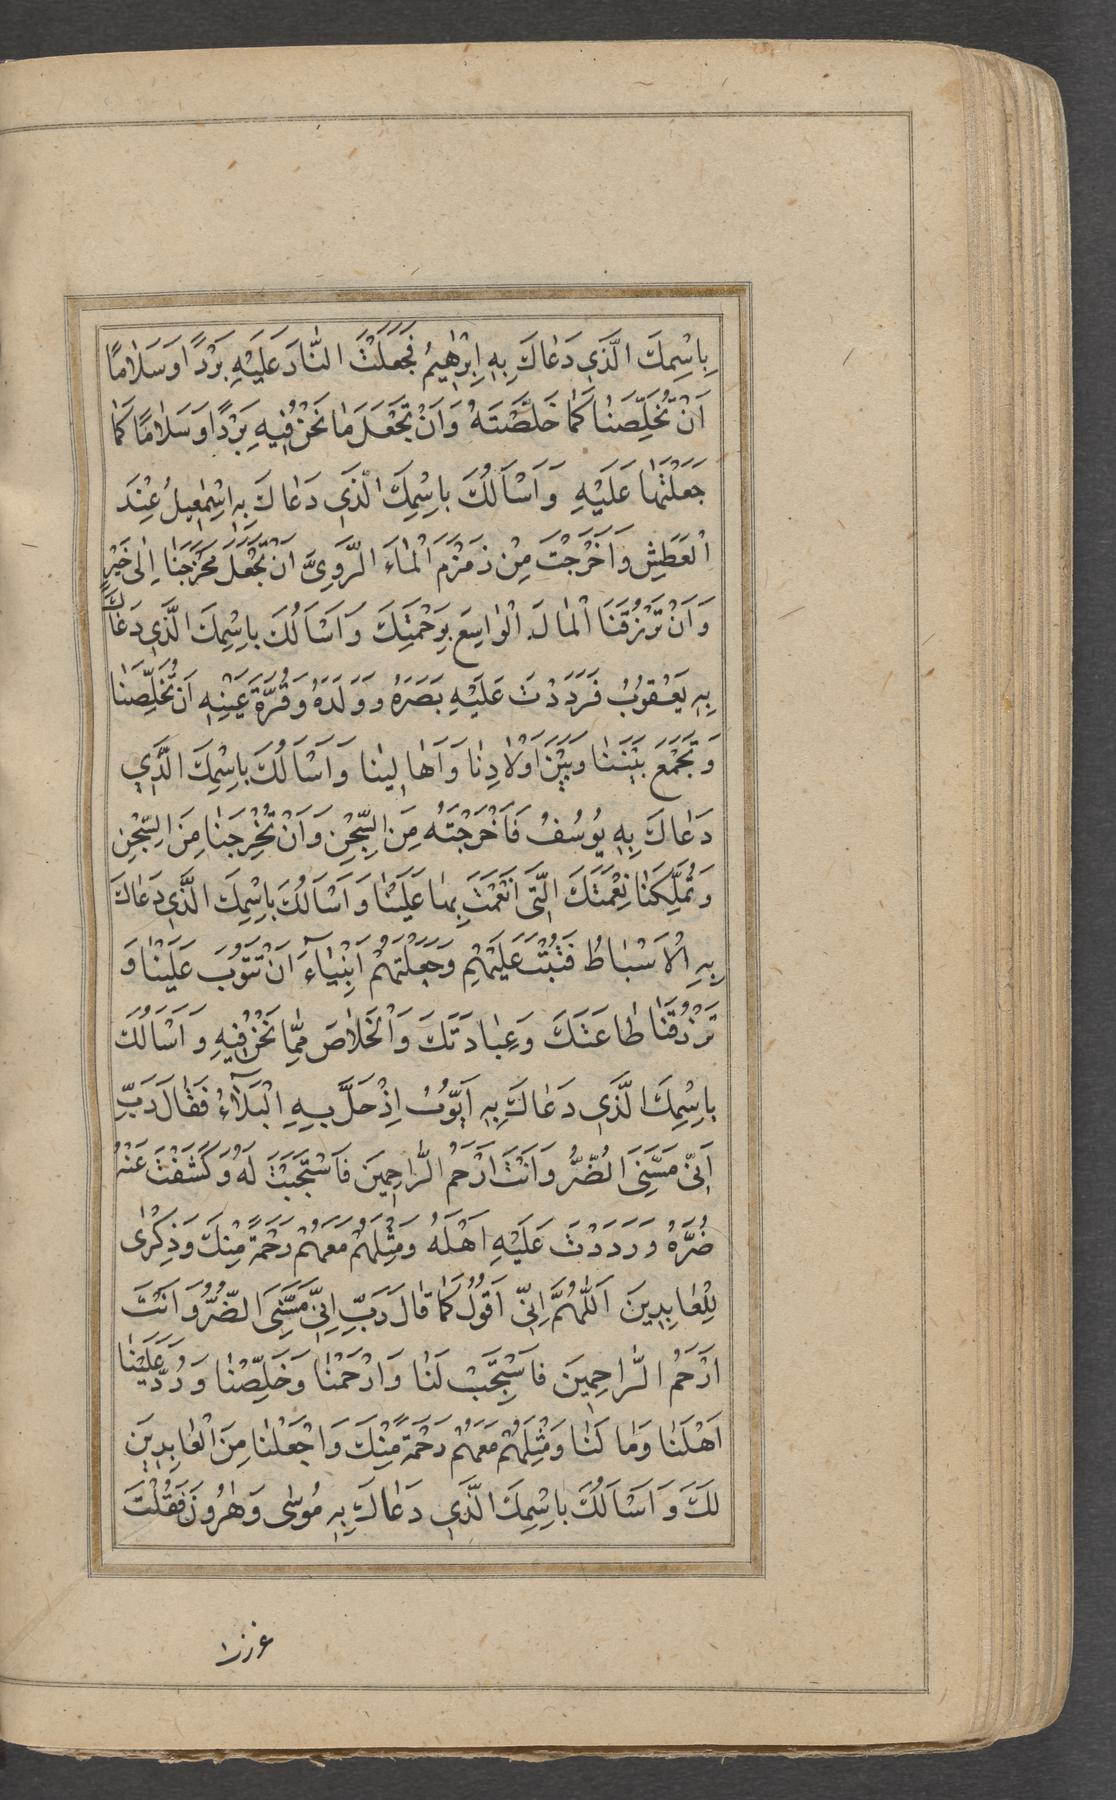 بِاسْمِكَ الَّذَي دَعٰاكَ بِهِ اِبْرٰهٖيمُ فَجَعَلْتَ النّٰارَ عَلَيْهِ بَرْدًا وَسَلٰامًا
اَنْ تُخَلِّصَنٰا كَمٰا خَلَّصْتَهُ وَاَنْ تَجْعَلَ مٰا نَحْنُ فٖيهِ بَرْدًا وَسَلٰامًا كَمٰا
جَعَلْتَهٰا عَلَيْهِ وَاَسْاَلُكَ بِاسْمِكَ الَّذَي دَعٰاكَ بِهِ اِسْمٰعٖيلُ عِنْدَ
الْعَطَشِ وَاَخْرَجْتَ مِنْ زَمْزَمَ الْمٰاءَ الرَّوِيَّ اَنْ تَجْعَلَ مَخْرَجَنٰا اِلٰى خَيْرٍ
وَاَنْ تَرْزُقَنَا الْمٰالَ الْوٰاسِعَ بِرَحْمَتِكَ وَاَسْاَلُكَ بِاسْمِكَ الَّذَي دَعٰاكَ
بِهِ يَعْقُوبُ فَرَدَدْتَ عَلَيْهِ بَصَرَهُ وَوَلَدَهُ وَقُرَّةَ عَيْنِهِ اَنْ تُخَلِّصَنٰا
وَتَجْمَعَ بَيْنَنٰا وَبَيْنَ اَوْلٰادِنٰا وَاَهٰالٖينٰا وَاَسْاَلُكَ بِاسْمِكَ الَّذَي
دَعٰاكَ بِهِ يُوسُفُ فَاَخْرَجْتَهُ مِنَ السِّجْنِ وَاَنْ تُخْرِجَنٰا مِنَ السِّجْنِ
وَتُمَلِّكَنٰا نِعْمَتَكَ الَّتٖي اَنْعَمْتَ بِهٰا عَلَيْنٰا وَاَسْاَلُكَ بِاسْمِكَ الَّذَي دَعٰاكَ
بِهِ الْاَسْبٰاطُ فَتُبْتَ عَلَيْهِمْ وَجَعَلْتَهُمْ اَنْبِيٰاءَ اَنْ تَتُوبَ عَلَيْنٰا وَ
تَرْزُقَنٰا طٰاعَتَكَ وَعِبٰادَتَكَ وَالْخَلٰاصَ مِمّٰا نَحْنُ فٖيهِ وَاَسْاَلُكَ
بِاسْمِكَ الَّذَي دَعٰاكَ بِهِ اَيُّوبُ اِذْ حَلَّ بِهِ الْبَلٰآءُ فَقٰالَ رَبِّ
اِنّٖي مَسَّنِيَ الضُّرُّ وَاَنْتَ اَرْحَمُ الرّٰاحِمٖينَ فَاسْتَجَبْتَ لَهُ وَكَشَفْتَ عَنْهُ
ضُرَّهُ وَرَدَدْتَ عَلَيْهِ اَهْلَهُ وَمِثْلَهُمْ مَعَهُمْ رَحْمَةً مِنْكَ وَذِكْرٰى
لِلْعٰابِدٖينَ اَللّٰهُمَّ اِنّٖي اَقُولُ كَمٰا قٰالَ رَبِّ اِنّٖي مَسَّنِيَ الضُّرُّ وَاَنْتَ
اَرْحَمُ الرّٰاحِمٖينَ فَاسْتَجِبْ لَنٰا وَارْحَمْنٰا وَخَلِّصْنٰا وَرُدَّ عَلَيْنٰا
اَهْلَنٰا وَمٰا لَنٰا وَمِثْلَهُمْ مَعَهُمْ رَحْمَةً مِنْكَ وَاجْعَلْنٰا مِنَ الْعٰابِدٖينَ
لَكَ وَاَسْاَلُكَ بِاسْمِكَ الَّذَي دَعٰاكَ بِهِ مُوسٰى وَهٰرُونَ فَقُلْتَ